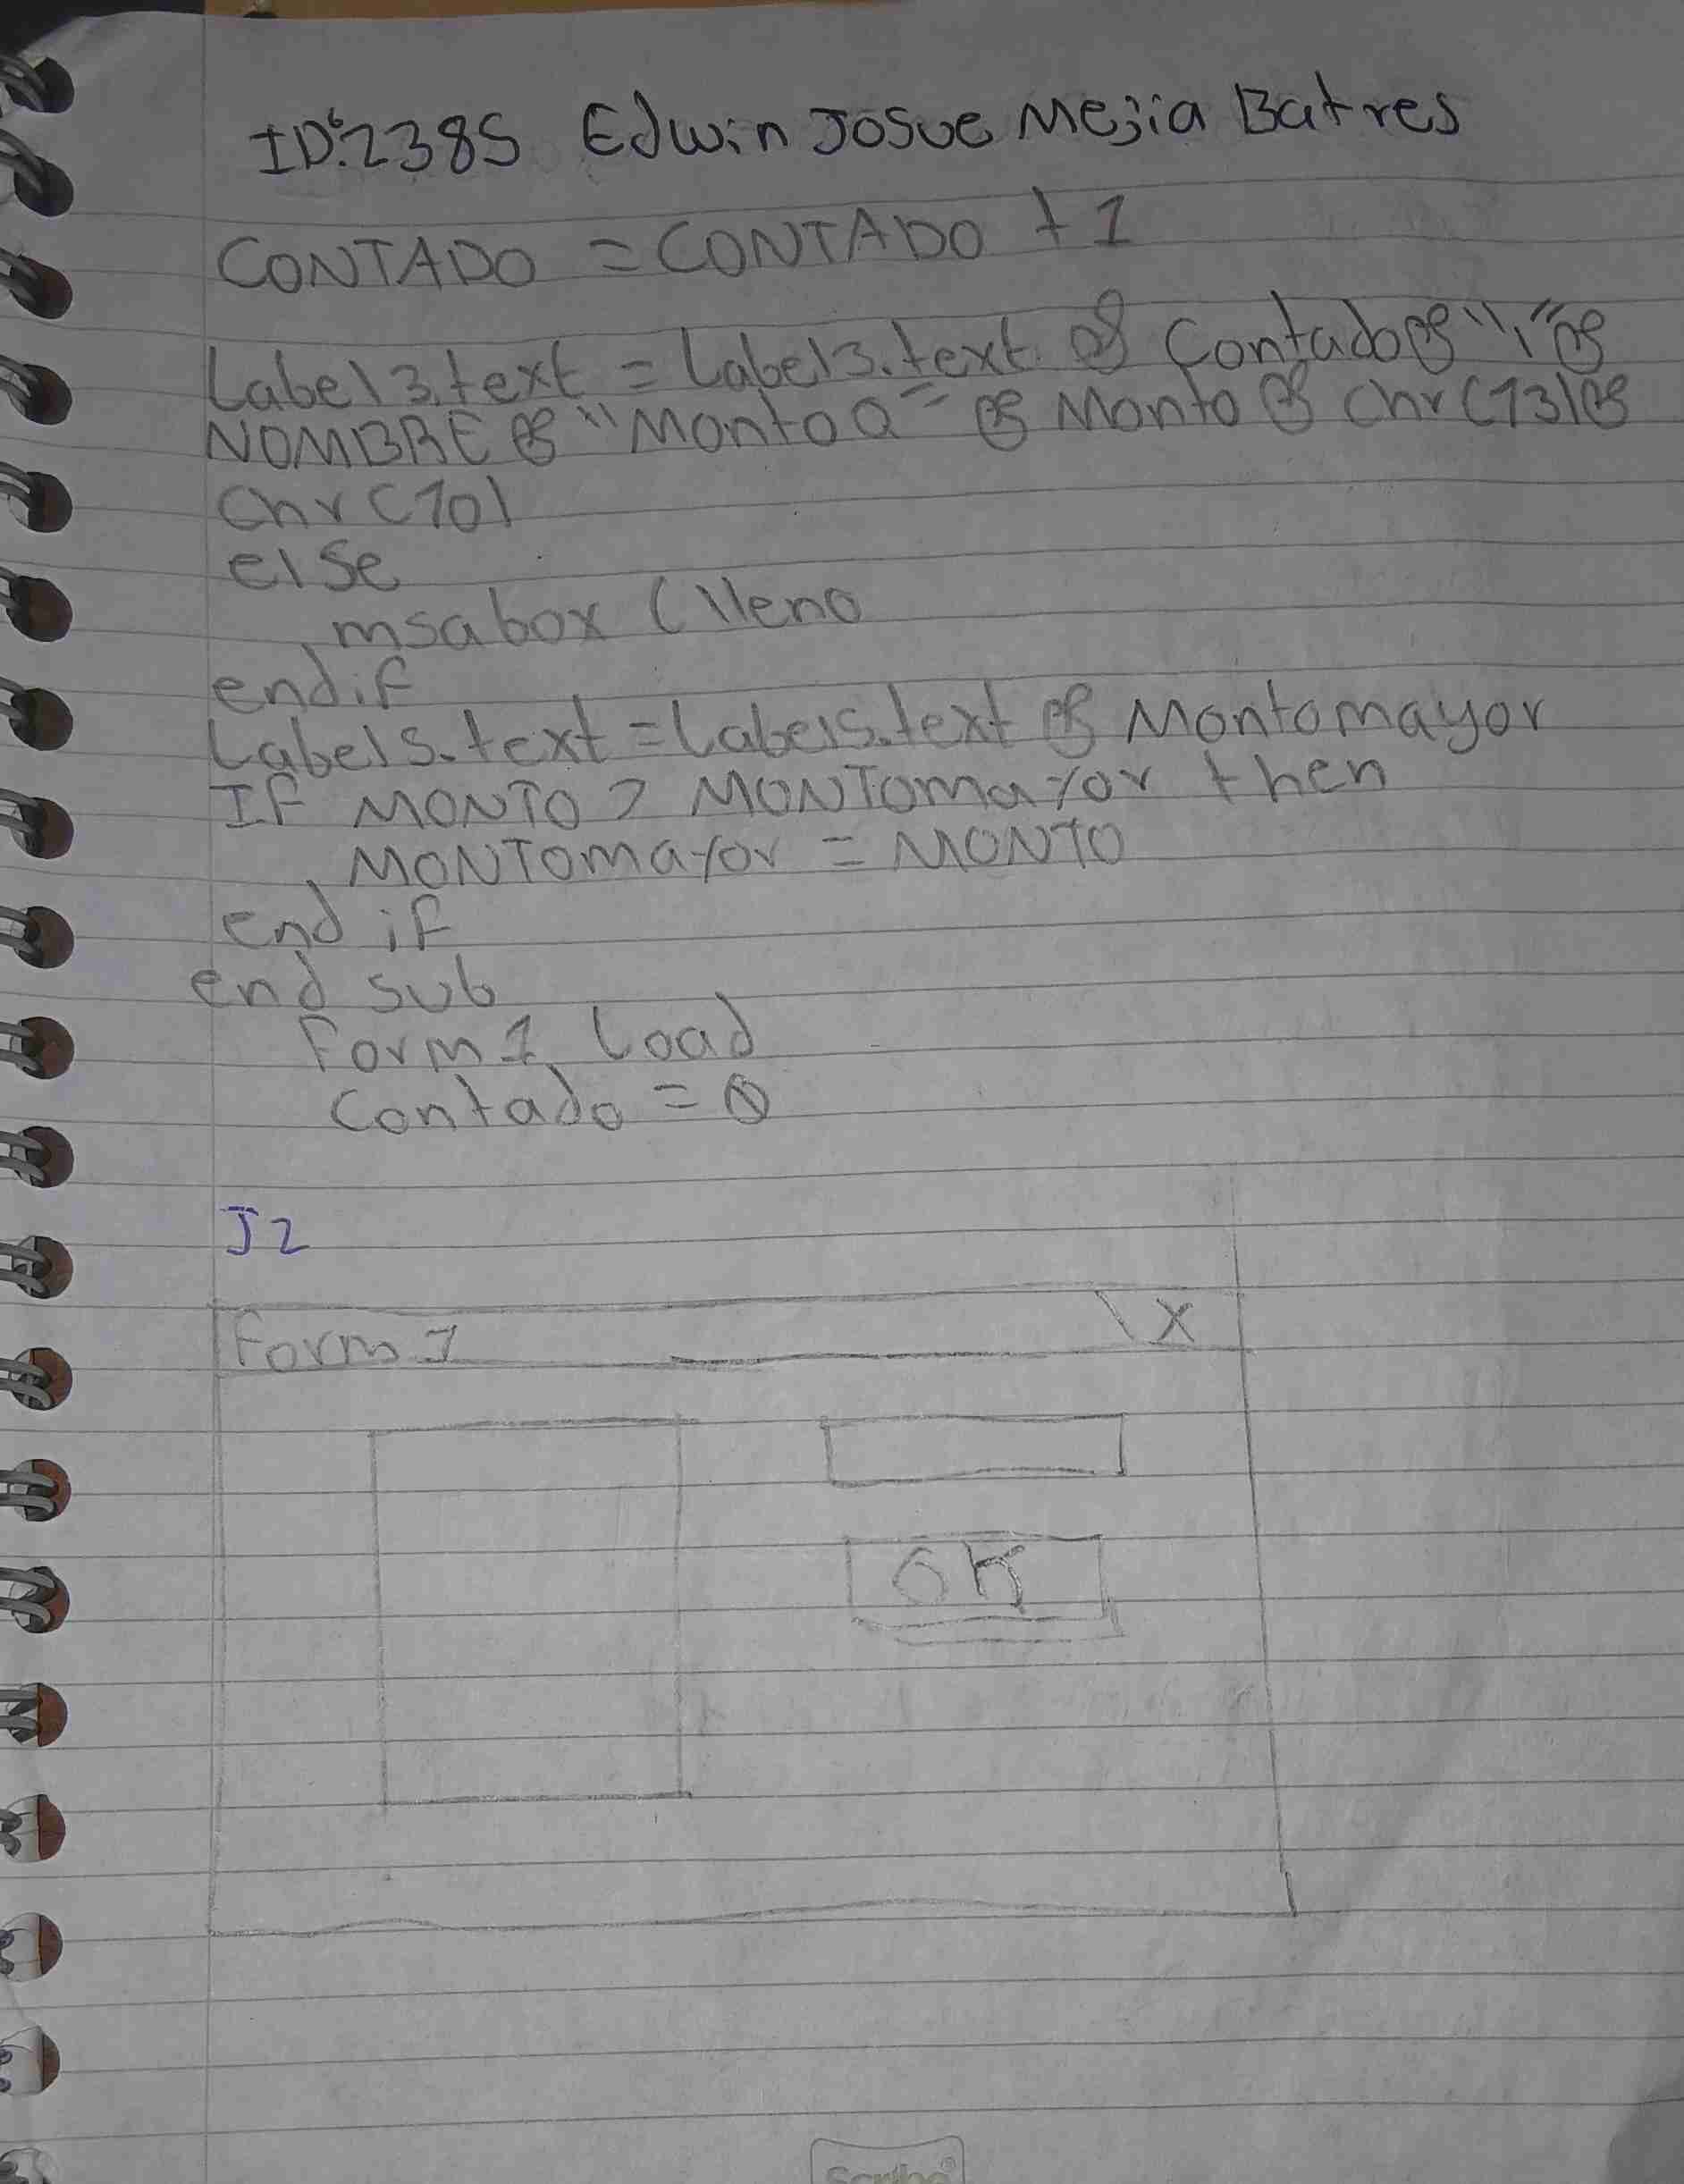 ID:2385 Edwin Josue Mejia Batres
CONTADO = CONTADO + 1
Label3.text = Label3.text & Contado & "," &
NOMBRE & "Monto Q" & Monto & Chr(13) &
Chr(10)
else
msabox (lleno
end if
Label5.text = Label5.text & Montomayor
If MONTO > MONTOmayor then
MONTOmayor = MONTO
end if
end sub
Form1 Load
Contado = 0
J2
Form 1 X
OK
Scribe